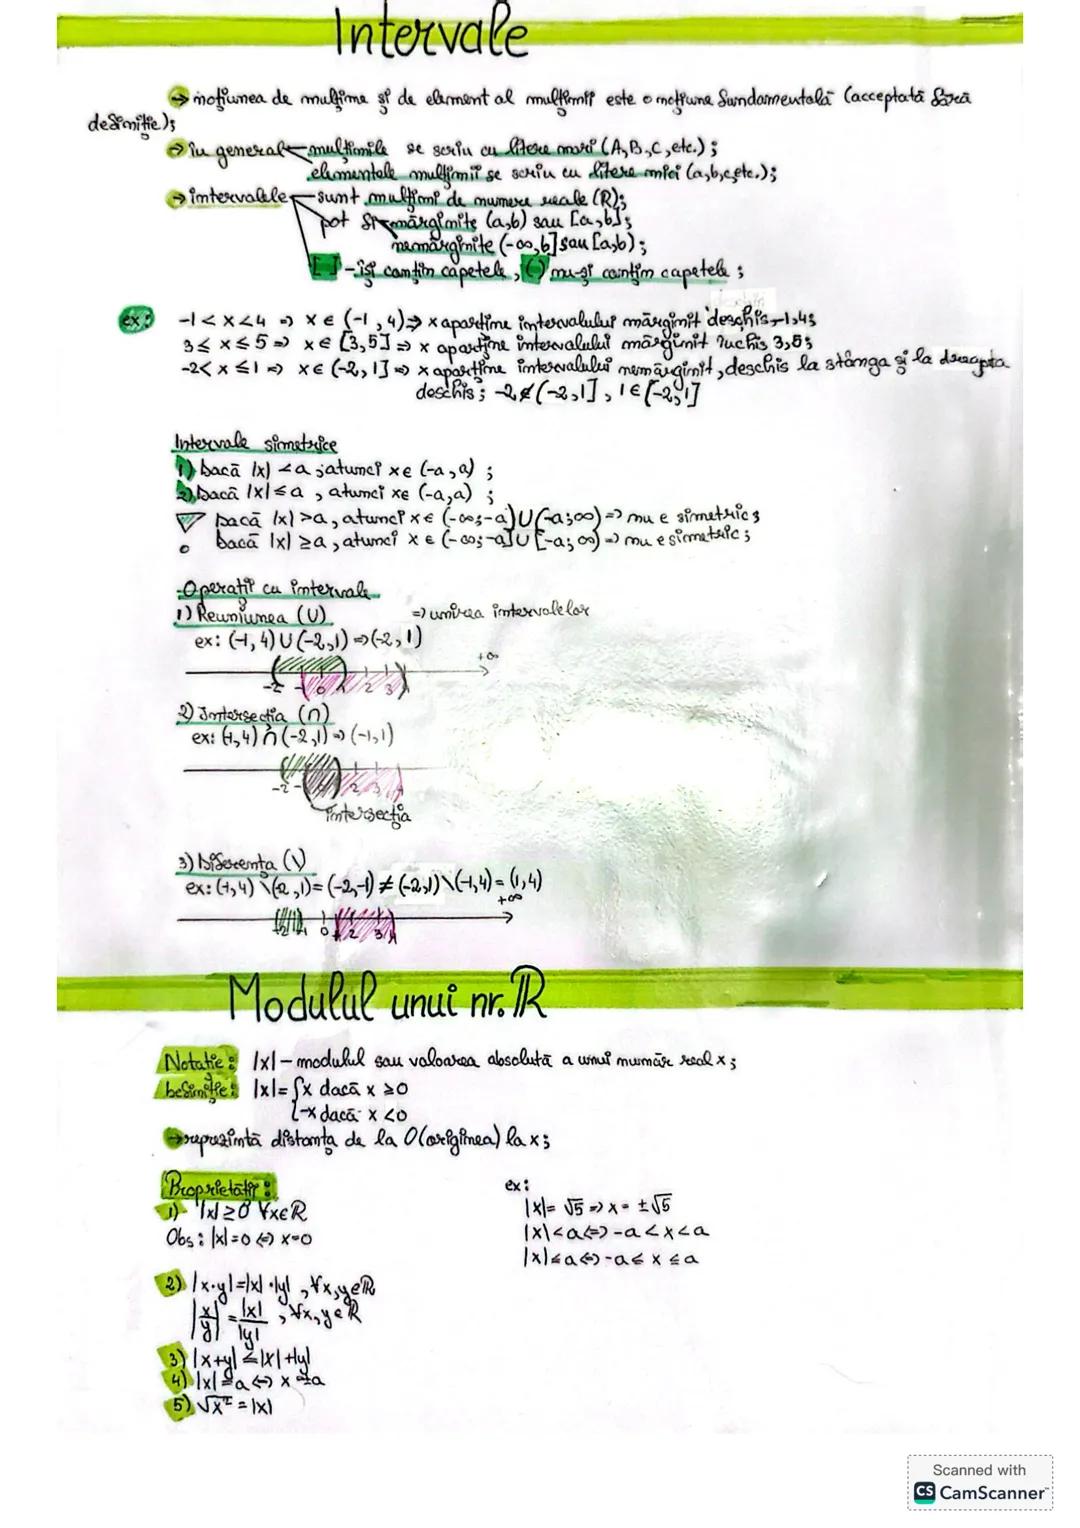 Intervale
→ noțiunea de mulțime și de element al mulțimii este o noțiune fundamentală (acceptată fără
definiție);
→ în general mulțimile se scriu cu litere mari (A,B,C,etc.);
elementele mulțimii se scriu cu litere mici (a,b,c,etc.);
→ intervalele sunt mulțimi de numere reale (R);
pot fi mărginite (a,b) sau [a,b];
nemărginite (-∞,b] sau [a,b);
[ ] - își conțin capetele, ( ) nu-și conțin capetele;
ex: -1 < x < 4 ⇒ x ∈ (-1,4) ⇒ x aparține intervalului mărginit deschis -1,4;
3 ≤ x ≤ 5 ⇒ x ∈ [3,5] ⇒ x aparține intervalului mărginit închis 3,5;
-2 < x ≤ 1 ⇒ x ∈ (-2,1] ⇒ x aparține intervalului nemărginit, deschis la stânga și la dreapta
deschis; -2 ∉ (-2,1], 1 ∈ [-2,1]
Intervale simetrice
1) Dacă |x| < a, atunci x ∈ (-a,a);
2) Dacă |x| ≤ a, atunci x ∈ (-a,a);
Dacă |x| > a, atunci x ∈ (-∞;-a) ∪ (-a;∞) ⇒ nu e simetric;
Dacă |x| ≥ a, atunci x ∈ (-∞;-a] ∪ [-a;∞) ⇒ nu e simetric;
Operații cu intervale
1) Reuniunea (∪) ⇒ unirea intervalelor
ex: (-1,4) ∪ (-2,1) ⇒ (-2,1)
+∞
-2 -1 0 2 3
2) Intersecția (∩)
ex: (-1,4) ∩ (-2,1) ⇒ (-1,1)
-2 2
intersecția
3) Diferența (\)
ex: (-1,4) \ (-2,1) = (-2,-1) ≠ (-2,1) \ (-1,4) = (1,4)
+∞
0 2 3
Modulul unui nr. ℝ
Notație: |x| - modulul sau valoarea absolută a unui număr real x;
Definiție: |x| = { x dacă x ≥ 0
-x dacă x < 0
→ reprezintă distanța de la O(originea) la x;
Proprietății:
1) |x| ≥ 0 ∀x∈ℝ
Obs: |x| = 0 ⇔ x = 0
2) |x·y| = |x|·|y|, ∀x,y∈ℝ
|x/y| = |x|/|y|, ∀x,y∈ℝ
3) |x+y| ≤ |x| + |y|
4) |x| = a ⇔ x = ±a
5) √x² = |x|
ex:
|x| = √5 ⇒ x = ±√5
|x| < a ⇔ -a < x < a
|x| ≤ a ⇔ -a ≤ x ≤ a
Scanned with
CS CamScanner